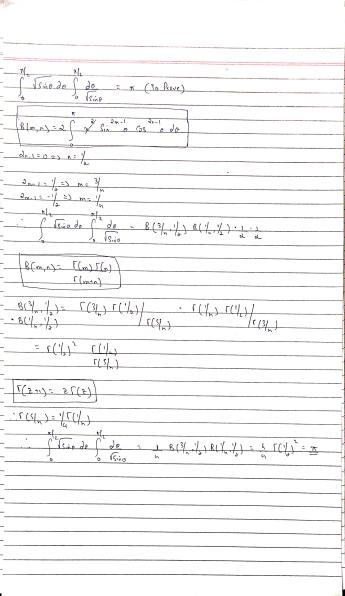 ∫₀^{π/2} √sinθ dθ ∫₀^{π/2} dθ/√sinθ = π (To Prove)
B(m,n) = 2 ∫₀^{π} sin^{2m-1} θ cos^{2n-1} θ dθ
2n-1 = 0 => n = 1/2
2m-1 = 1/2 => m = 3/4
2m-1 = -1/2 => m = 1/4
∴ ∫₀^{π/2} √sinθ dθ ∫₀^{π/2} dθ/√sinθ = B(3/4, 1/2) B(1/4, 1/2) · 1/2 · 1/2
B(m,n) = Γ(m) Γ(n) / Γ(m+n)
B(3/4, 1/2) · B(1/4, 1/2) = Γ(3/4) Γ(1/2) / Γ(5/4) · Γ(1/4) Γ(1/2) / Γ(3/4)
= Γ(1/2)² Γ(1/4) / Γ(5/4)
Γ(z+1) = z Γ(z)
∴ Γ(5/4) = 1/4 Γ(1/4)
∴ ∫₀^{π/2} √sinθ dθ ∫₀^{π/2} dθ/√sinθ = 1/4 B(3/4, 1/2) B(1/4, 1/2) = 4/4 Γ(1/2)² = π